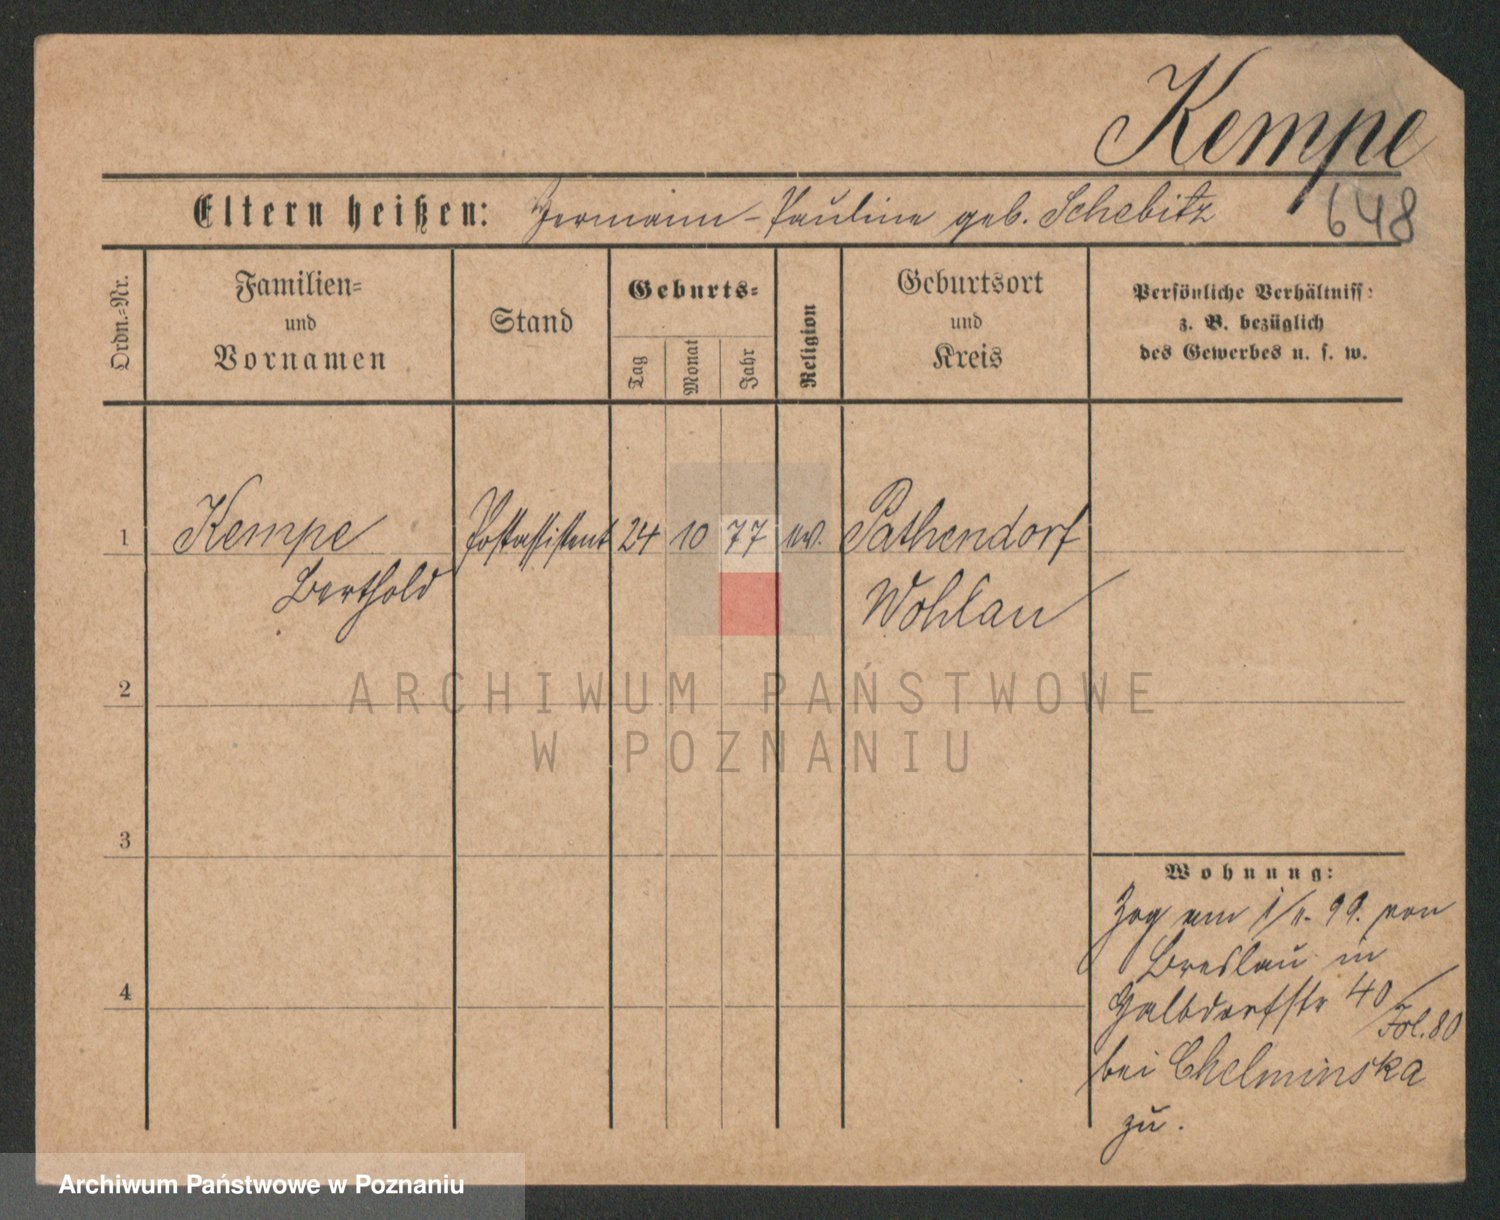 Kempe
648
Eltern heißen: Hermann - Pauline geb. Schebitz
Ordn.=Nr.
Familien=
und
Vornamen
Stand
Geburts=
Tag
Monat
Jahr
Religion
Geburtsort
und
Kreis
Persönliche Verhältniss:
z. B. bezüglich
des Gewerbes u. s. w.
1 Kempe Postassistent 24 10 77 ev. Pathendorf
Berthold Wohlau
2
ARCHIWUM PAŃSTWOWE
W POZNANIU
3
4
Wohnung:
Zog am 1/11. 99. von
Breslau in
Halbdorfstr 40/
Fol. 80
bei Chelminska
zu.
Archiwum Państwowe w Poznaniu